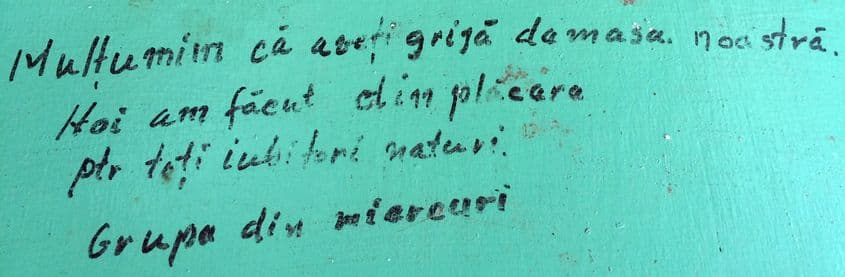 Mulțumim că aveți grijă de masa. noastră.
Noi am făcut din plăcere
ptr toți iubitori naturi.
Grupa din miercuri